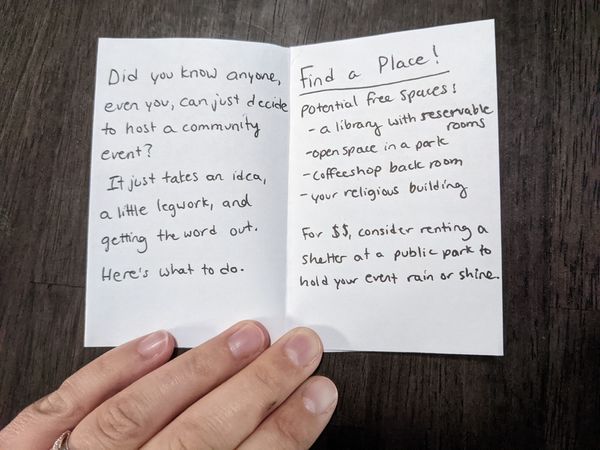 Did you know anyone,
even you, can just decide
to host a community
event?
It just takes an idea,
a little legwork, and
getting the word out.
Here's what to do.
Find a Place!
Potential free spaces:
- a library with reservable
rooms
- open space in a park
- coffeeshop back room
- your religious building
For $$, consider renting a
shelter at a public park to
hold your event rain or shine.